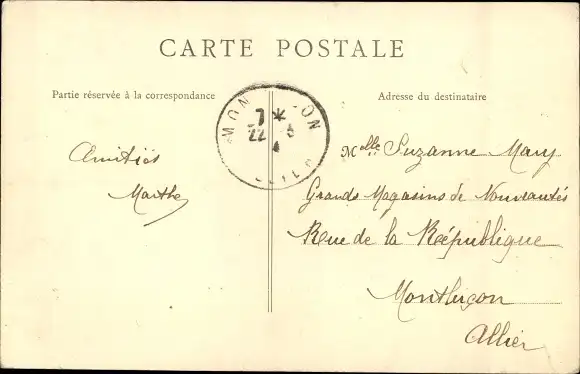 CARTE POSTALE
Partie réservée à la correspondance
Adresse du destinataire
Amitiés
Marthe
Melle Suzanne Mary
Grands Magasins de Nouveautés
Rue de la République
Montluçon
Allier
MON ÇON
7 *
22